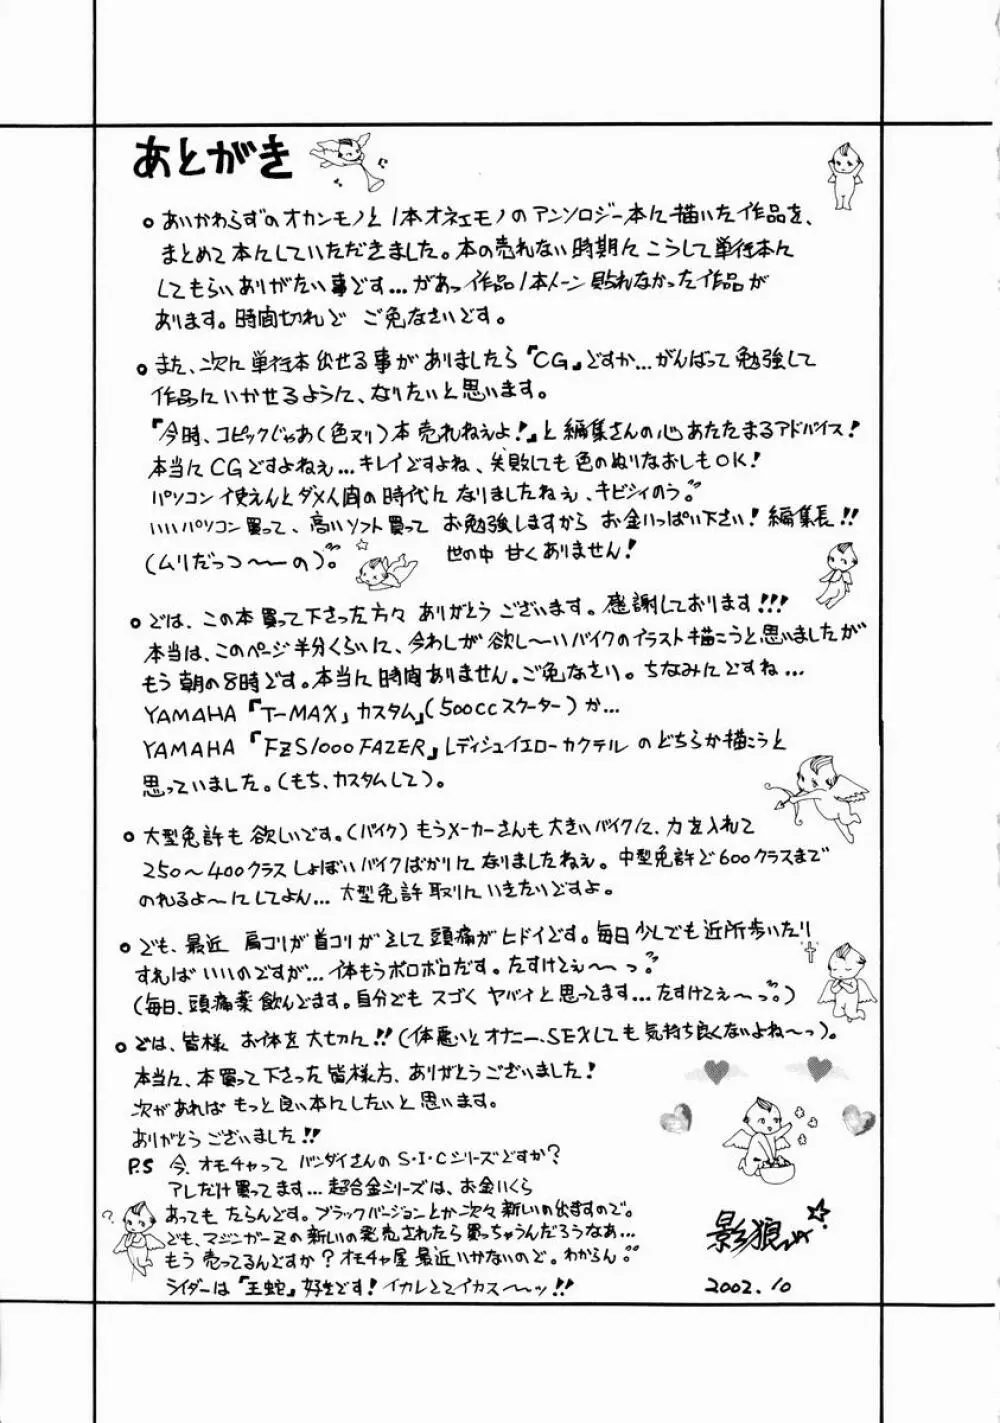 あとがき
あいかわらずのオカンモノと1本オネェモノのアンソロジー本に描いた作品を、
まとめて本にしていただきました。本の売れない時期にこうして単行本に
してもらいありがたい事です…があっ作品1本トーン貼れなかった作品が
あります。時間切れで ご免なさいです。
また、次に単行本出せる事がありましたら『CG』ですか…がんばって勉強して
作品にいかせるように、なりたいと思います。
『今時、コピックじゃあ(色ヌリ)本売れねぇよ!』と編集さんの心あたたまるアドバイス!
本当にCGですよねぇ…キレイですよね、失敗しても色のぬりなおしもOK!
パソコン使えんとダメ人間の時代になりましたねぇ、キビシイのう。
いいパソコン買って、高いソフト買って お勉強しますから お金いっぱい下さい!編集長!!
(ムリだっつ〜ーの)。 世の中 甘くありません!
では、この本買って下さった方々 ありがとうございます。感謝しております!!!
本当は、このページ半分くらいに、今わしが欲し〜いバイクのイラスト描こうと思いましたが
もう朝の8時です。本当に時間ありません。ご免なさい。ちなみにですね…
YAMAHA「T-MAX」カスタム」(500ccスクーター)か…
YAMAHA『FZS1000 FAZER』レディシュイエローカクテル のどちらか描こうと
思っていました。(もち、カスタムして)。
大型免許も欲しいです。(バイク)もうメーカーさんも大きいバイクに、力を入れて
250〜400クラスしょぼいバイクばかりになりましたねぇ。中型免許で600クラスまで
のれるよ〜にしてよん…大型免許取りにいきたいですよ。
でも、最近 肩コリが首コリがそして頭痛がヒドイです。毎日少しでも近所歩いたり
すればいいのですが…体もうボロボロだす。たすけてぇ〜っ。
(毎日、頭痛薬飲んでます。自分でもスゴくヤバイと思ってます…たすけてぇ〜っ。)
では、皆様 お体を大切に!!(体悪いとオナニー、SEXしても気持ち良くないよね〜っ)。
本当に、本買って下さった皆様方、ありがとうございました!
次があればもっと良い本にしたいと思います。
ありがとうございました!!
P.S 今、オモチャって バンダイさんのS・I・Cシリーズですか?
アレだけ買ってます…超合金シリーズは、お金いくら
あってもたらんです。ブラックバージョンとか次々新しいの出ますので。
でも、マジンガーZの新しいの発売されたら買っちゃうんだろうなあ…
もう売ってるんですか?オモチャ屋最近いかないので。わからん。
ライダーは『王蛇』好きです!イカレとてイカス〜ッ!!
?
影狼
2002.10